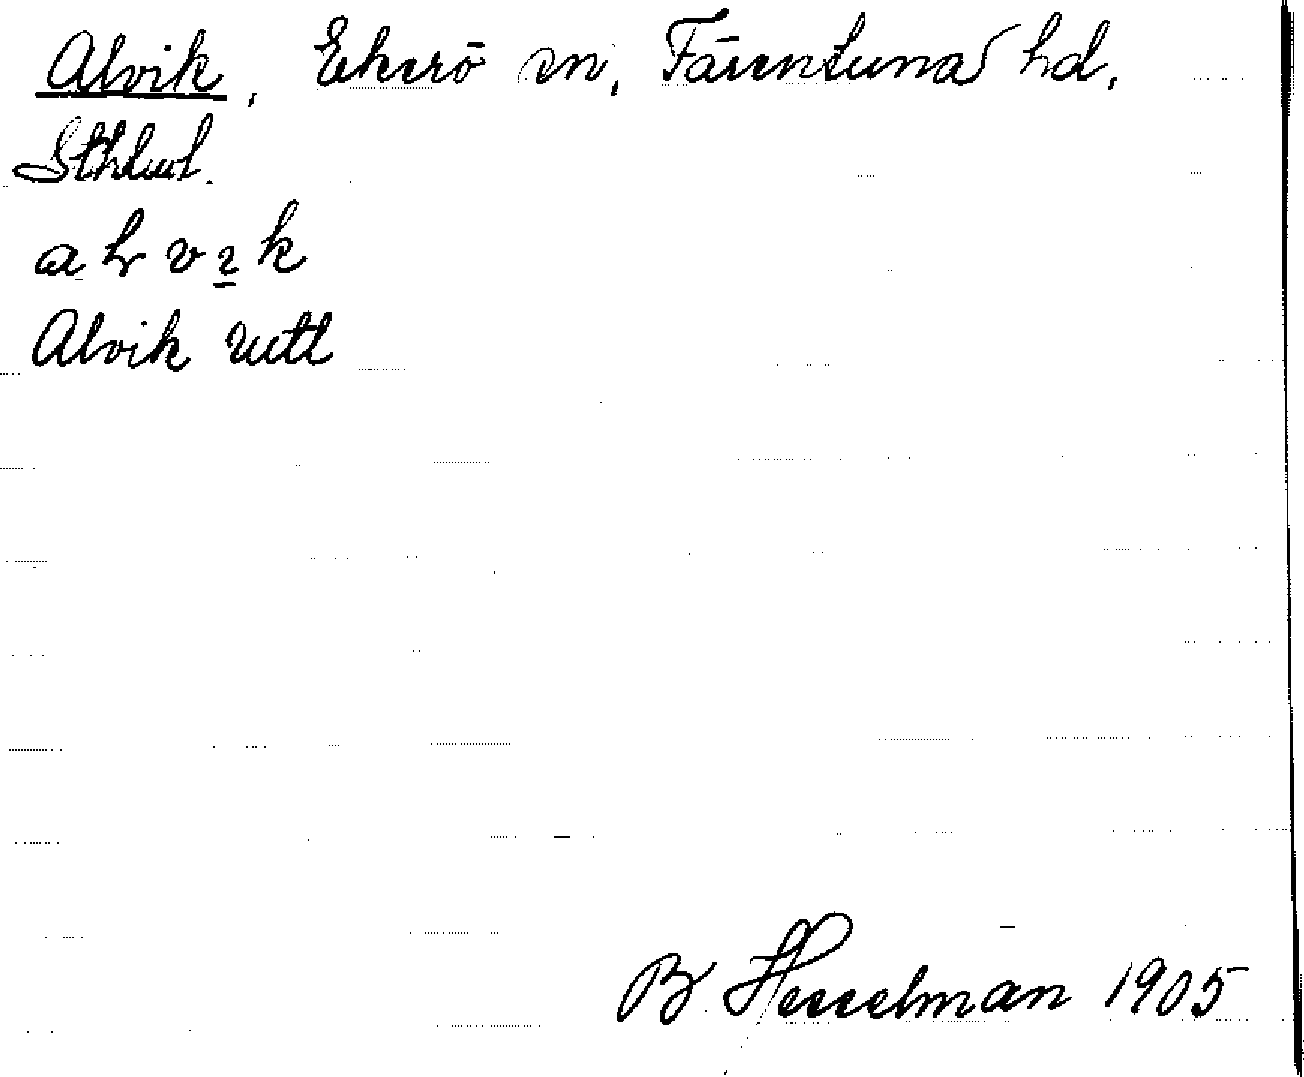 Alvik, Ekerö sn, Färentuna hd,
Sthlml.
Alvik
B. Hesselman 1905